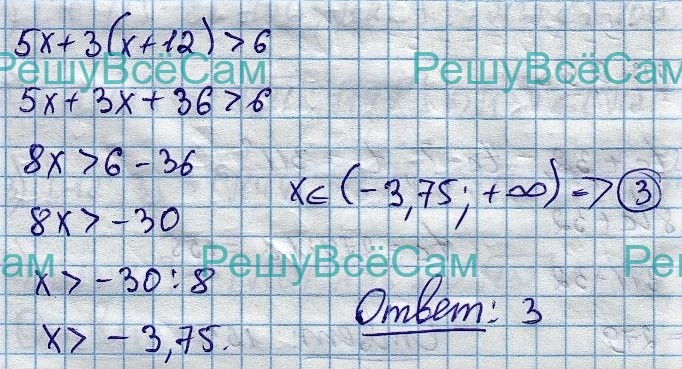 5x+3(x+12)>6
РешуВсёСам РешуВсёСам
5x+3x+36>6
8x>6-36
x∈(-3,75; +∞) => 3
8x>-30
ам РешуВсёСам Ре
x>-30:8
Ответ: 3
x>-3,75.